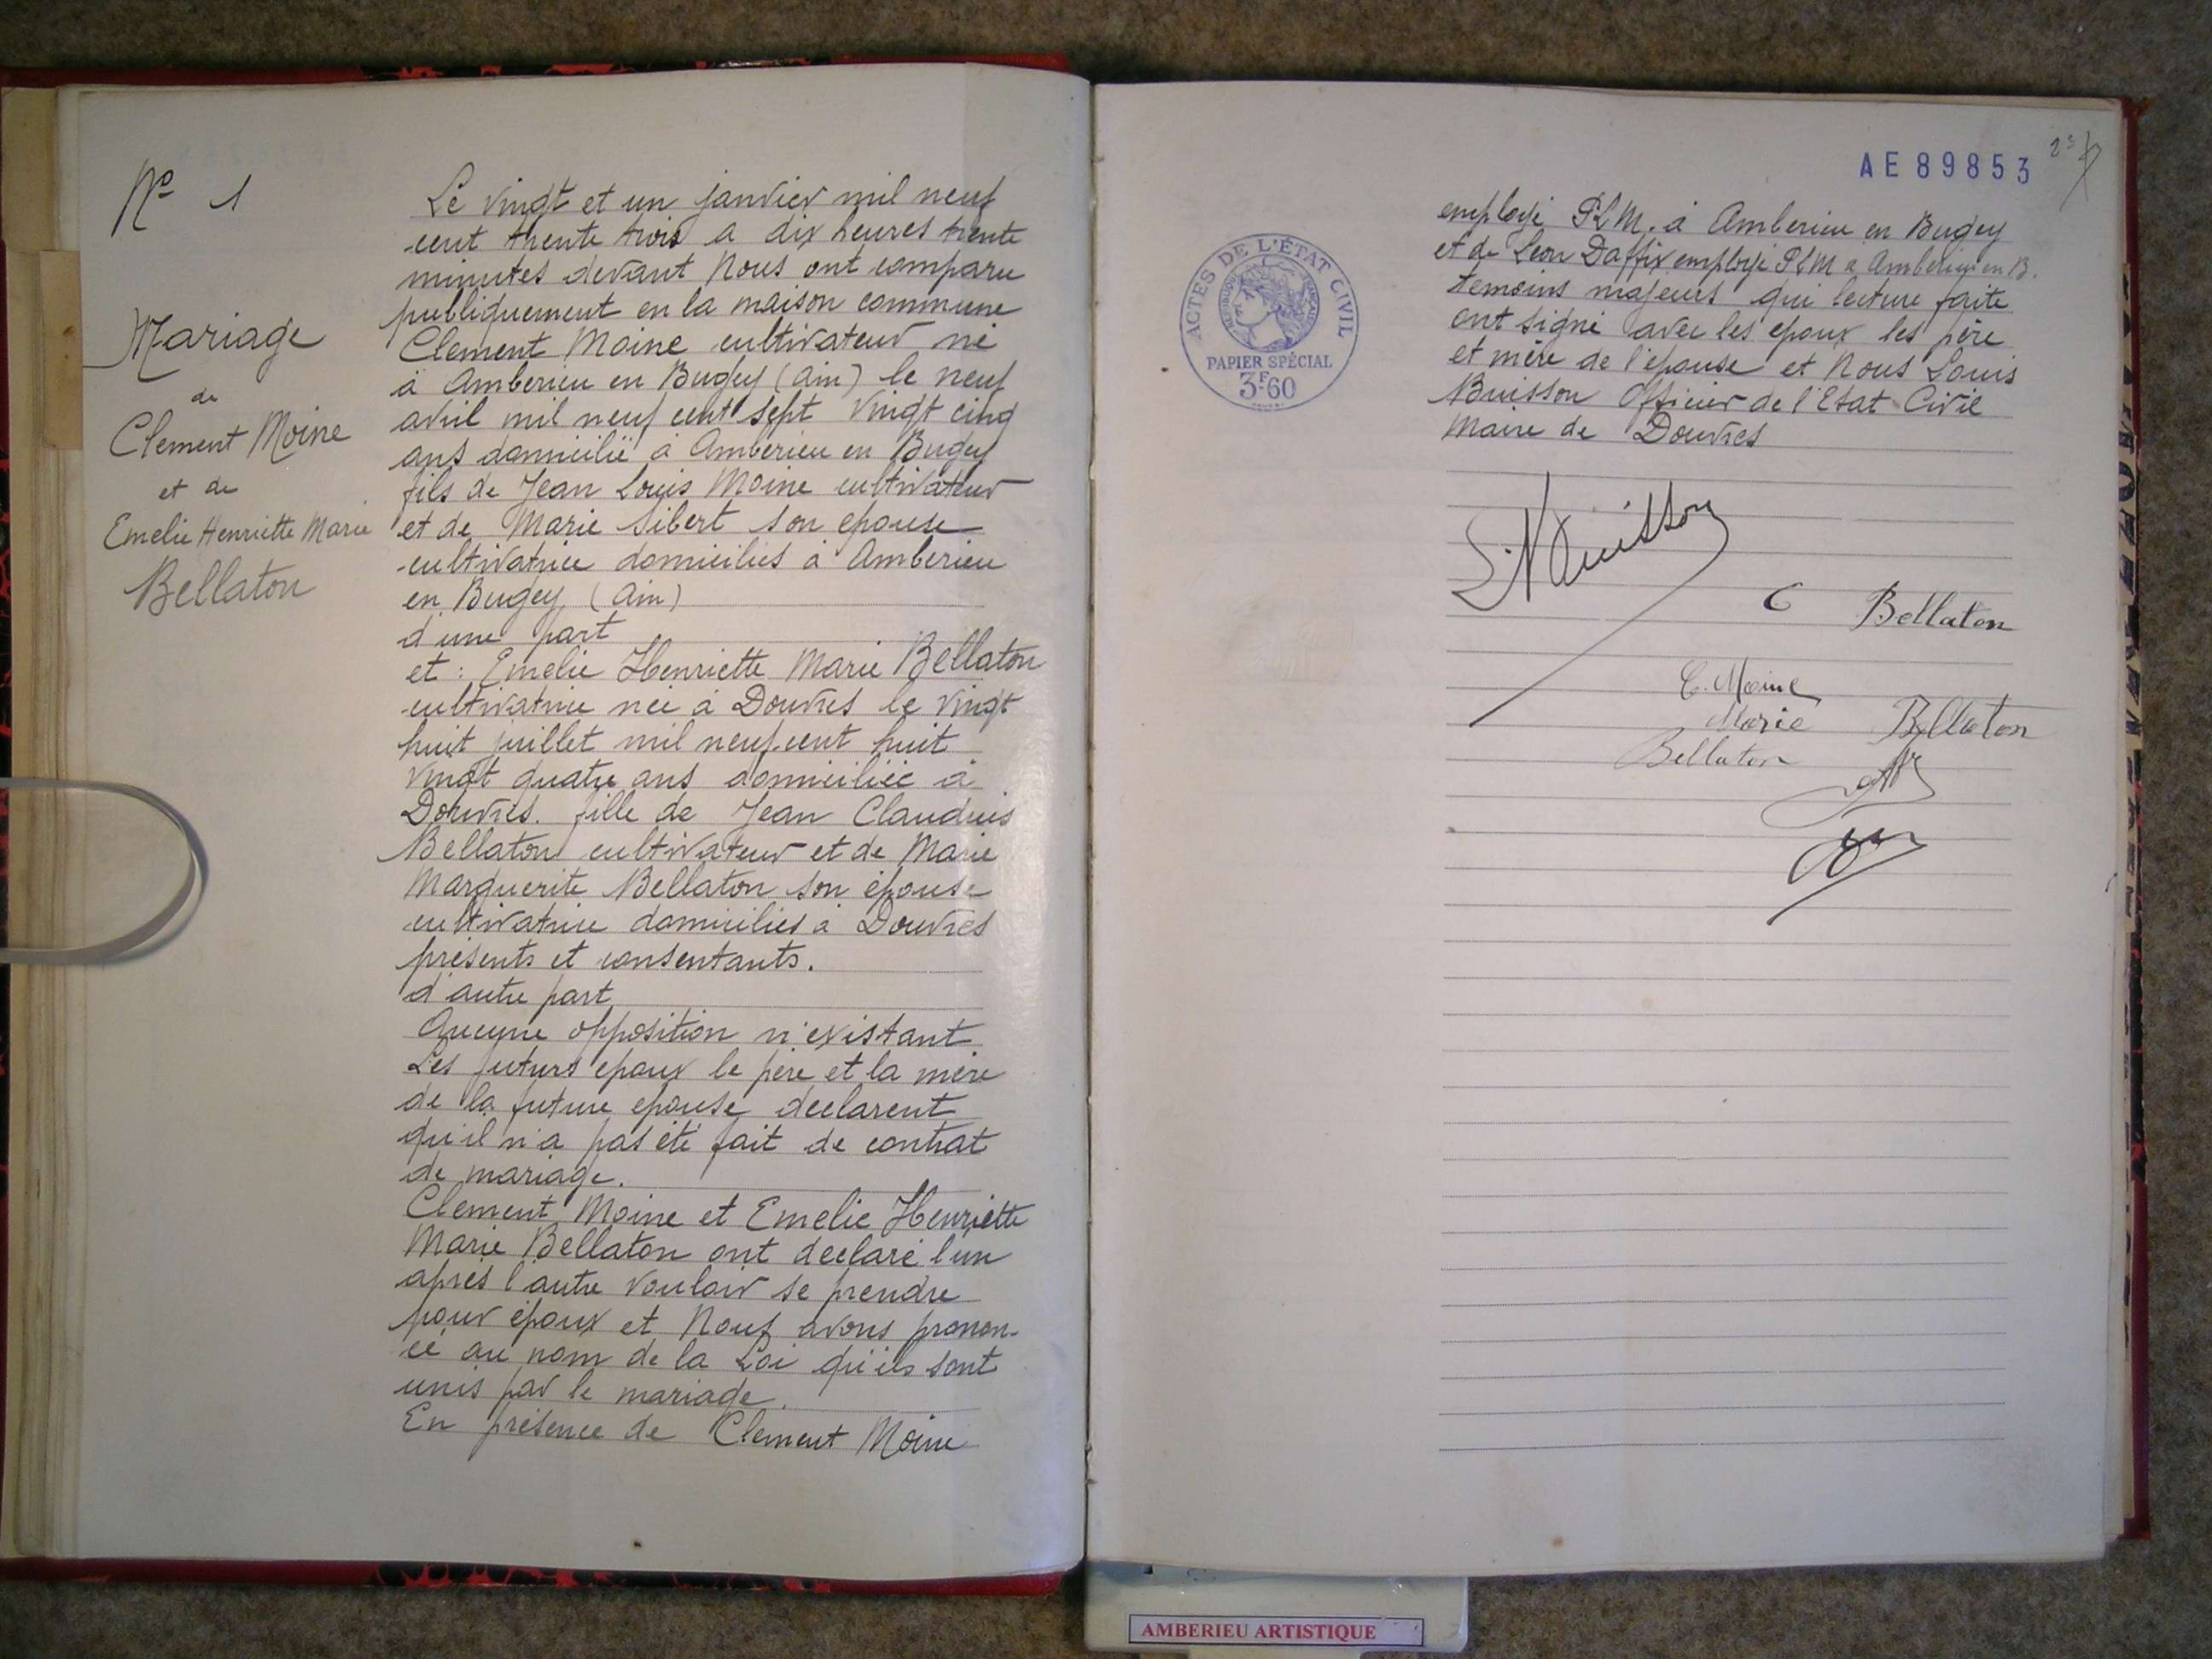 N° 1
Mariage
de
Clement Moine
et de
Emelie Henriette Marie
Bellaton
Le vingt et un janvier mil neuf
cent trente trois a dix heures trente
minutes devant Nous ont comparu
publiquement en la maison commune
Clement Moine cultivateur né
à Amberieu en Bugey (Ain) le neuf
avril mil neuf cent sept vingt cinq
ans domicilié à Ambérieu en Bugey
fils de Jean Louis Moine cultivateur
et de Marie Sibert son epouse
cultivatrice domiciliés à Amberieu
en Bugey (Ain)
d'une part
et : Emelie Henriette Marie Bellaton
cultivatrice née à Douvres le vingt
huit juillet mil neuf cent huit
vingt quatre ans domiciliée à
Douvres. fille de Jean Claudius
Bellaton cultivateur et de Marie
Marguerite Bellaton son épouse
cultivatrice domiciliés à Douvres
présents et consentants.
d'autre part
Aucune opposition n'existant
Les futurs epoux le père et la mère
de la future epouse declarent
qu'il n'a pas été fait de contrat
de mariage.
Clement Moine et Emelie Henriette
Marie Bellaton ont declaré l'un
après l'autre vouloir se prendre
pour époux et Nous avons pronon-
cé au nom de la Loi qu'ils sont
unis par le mariage.
En présence de Clement Moine
AE89853
employé PLM. à Amberieu en Bugey
et de Leon Daffix employé PLM a Amberieu en B.
temoins majeurs qui lecture faite
ont signé avec les epoux les père
et mère de l'épouse et Nous Louis
Buisson Officier de l'Etat Civil
Maire de Douvres
ACTES DE L'ÉTAT CIVIL
RÉPUBLIQUE FRANÇAISE
PAPIER SPÉCIAL
3F60
L. Buisson
C Bellaton
C. Moine
Marie Bellaton
Bellaton
AMBERIEU ARTISTIQUE